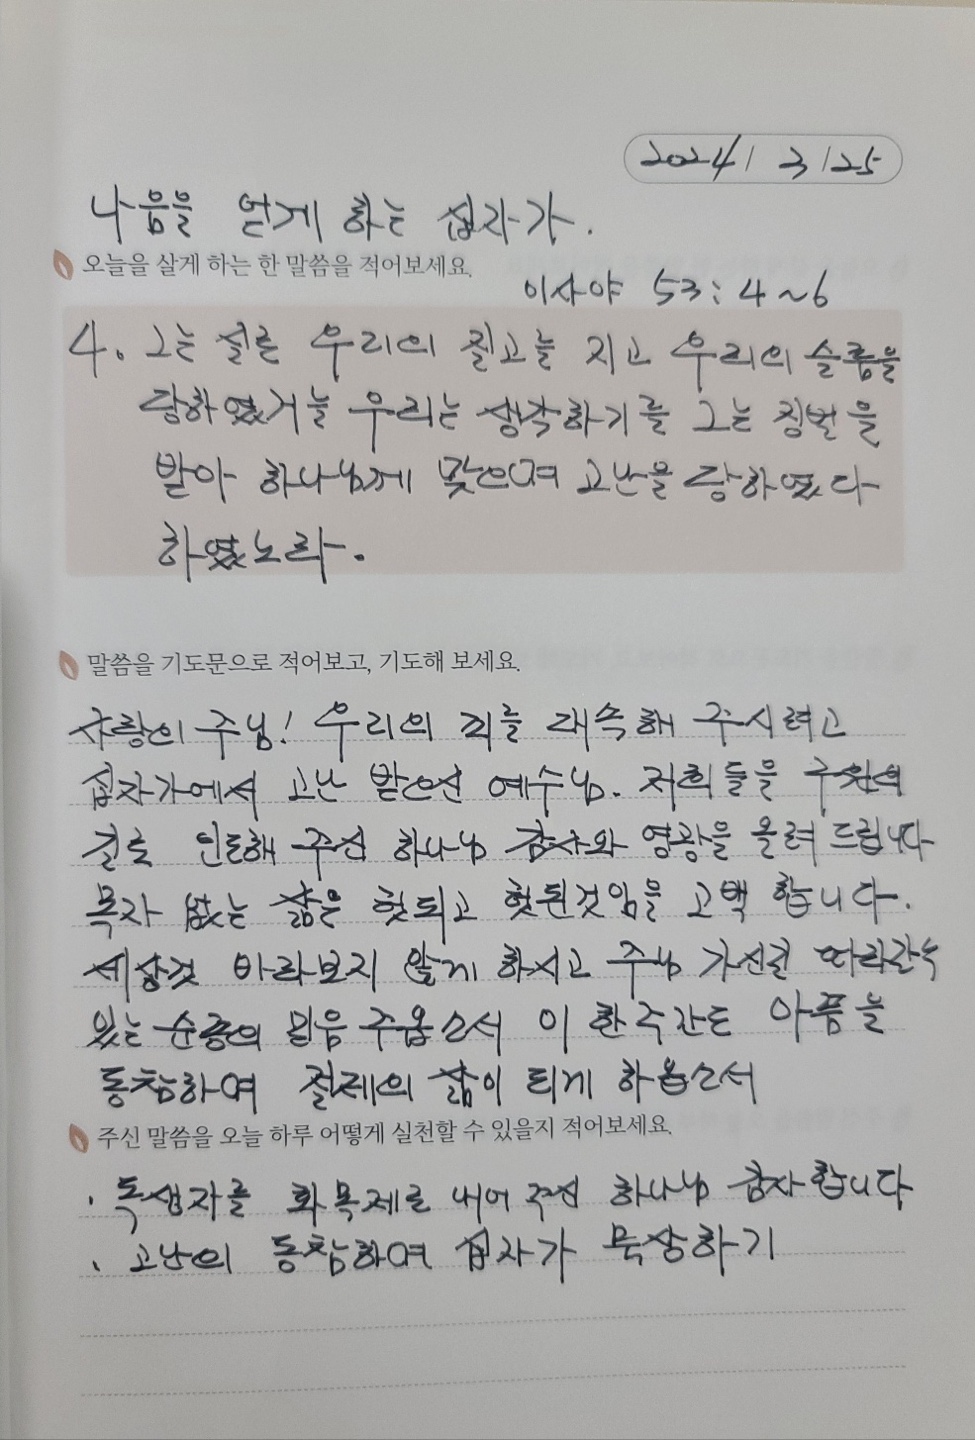 2024/ 3/25
나음을 얻게 하는 십자가.
오늘을 살게 하는 한 말씀을 적어보세요.
이사야 53:4~6
4. 그는 실로 우리의 질고늘 지고 우리의 슬픔을
당하였거늘 우리는 생각하기를 그는 징벌을
받아 하나님게 맞으며 고난을 당하였다
하였노라.
말씀을 기도문으로 적어보고, 기도해 보세요.
사랑의 주님! 우리의 죄를 대속해 주시려고
십자가에서 고난 받으신 예수님. 저희들을 구원의
길로 인도해 주신 하나님 감사와 영광을 올려 드립니다
목자 없는 삶은 헛되고 헛된것임을 고백 합니다.
세상것 바라보지 않게 하시고 주님 가신길 따라갈수
있는 순종의 믿음 주옵소서 이 한주간도 아픔을
동참하여 절제의 삶이 되게 하옵소서
주신 말씀을 오늘 하루 어떻게 실천할 수 있을지 적어보세요.
. 독생자를 화목제로 내어 주신 하나님 감사합니다
. 고난의 동참하여 십자가 묵상하기